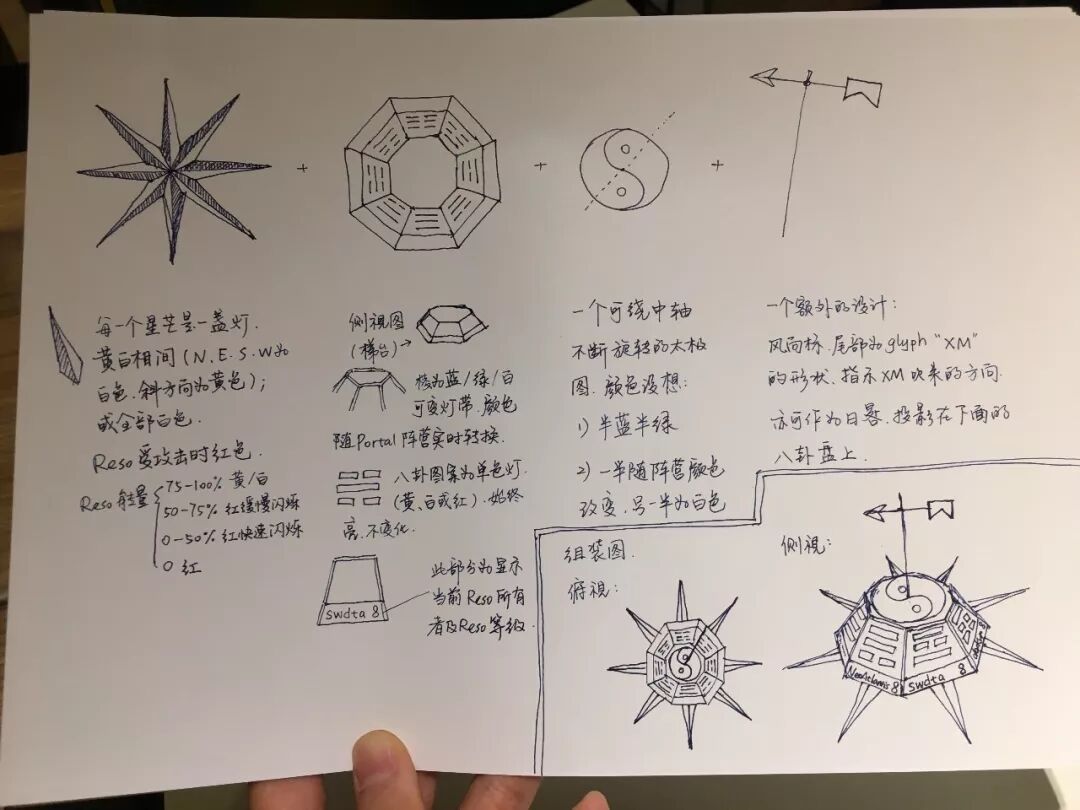 每一个星芒是一盏灯.
黄白相间(N、E、S、W为
白色,斜方向为黄色);
或全部白色.
Reso受攻击时红色.
Reso能量
75-100% 黄/白
50-75% 红缓慢闪烁
0-50% 红快速闪烁
0 红
侧视图
(梯台)→
棱为蓝/绿/白
可变灯带,颜色
随Portal阵营实时转换.
八卦图案为单色灯
(黄、白或红).始终
亮,不变化.
此部分为显示
当前Reso所有
者及Reso等级.
swdta 8
一个可绕中轴
不断旋转的太极
图.颜色设想:
1) 半蓝半绿
2) 一半随阵营颜色
改变,另一半为白色
一个额外的设计:
风向标,尾部为glyph "XM"
的形状,指示XM吹来的方向.
亦可作为日晷,投影在下面的
八卦盘上.
组装图.
俯视:
侧视:
NeoAtlantis 8
swdta 8